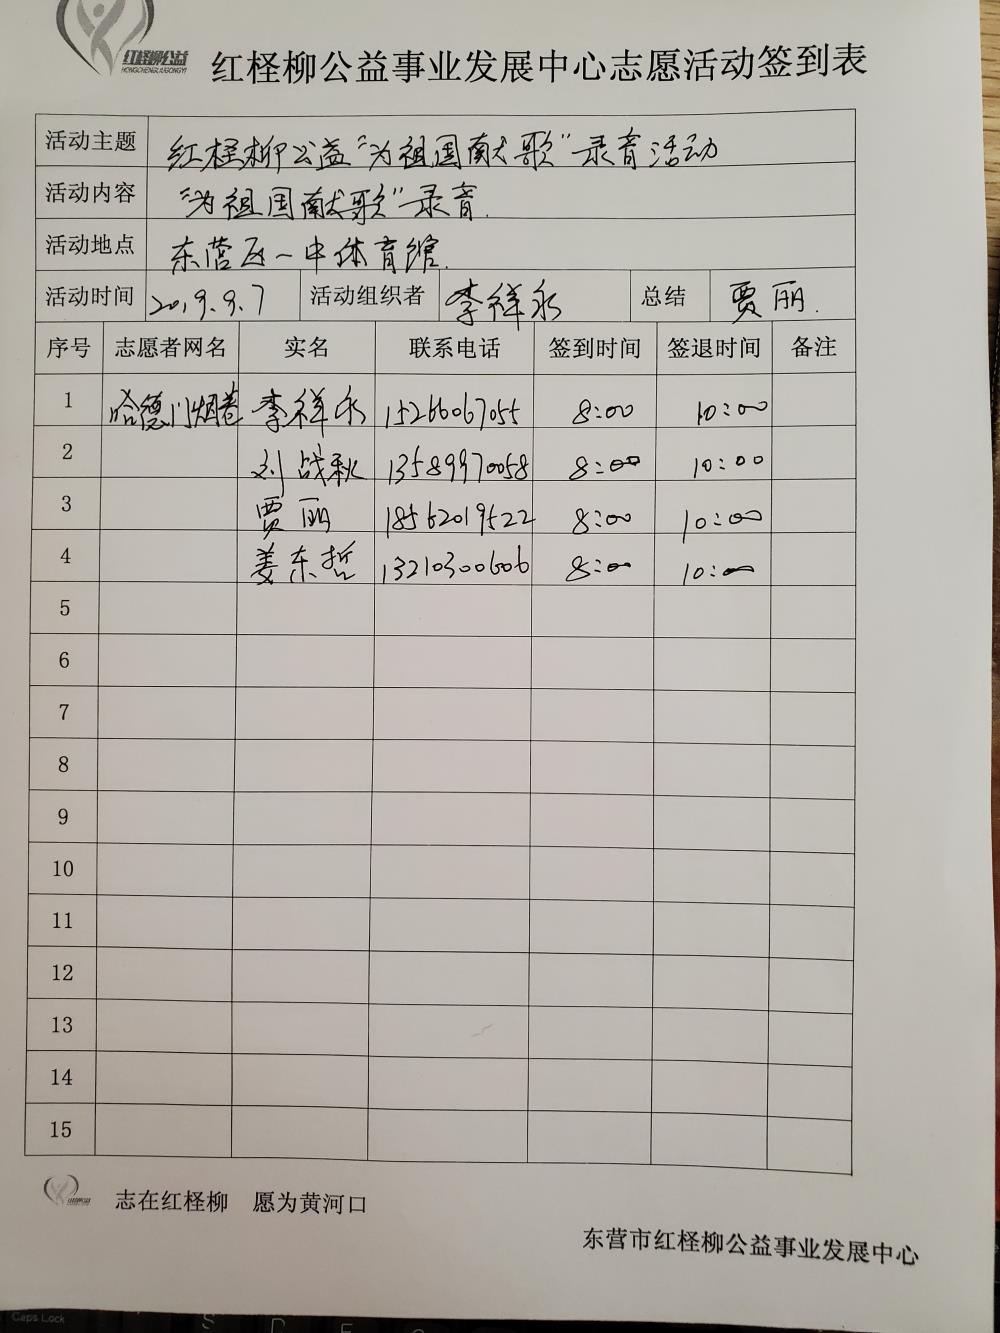 红柽柳公益
HONGCHENGLIUGONGYI
红柽柳公益事业发展中心志愿活动签到表
活动主题 红柽柳公益“为祖国献歌”录音活动
活动内容 “为祖国献歌”录音.
活动地点 东营区一中体育馆.
活动时间 2019.9.7 活动组织者 李祥永 总结 贾丽.
序号 志愿者网名 实名 联系电话 签到时间 签退时间 备注
1 哈德门烟卷 李祥永 15266067055 8:00 10:00
2 刘战秋 13589970058 8:00 10:00
3 贾丽 18562019522 8:00 10:00
4 姜东哲 13210300606 8:00 10:00
5
6
7
8
9
10
11
12
13
14
15
志在红柽柳 愿为黄河口
东营市红柽柳公益事业发展中心
Caps Lock
S D F